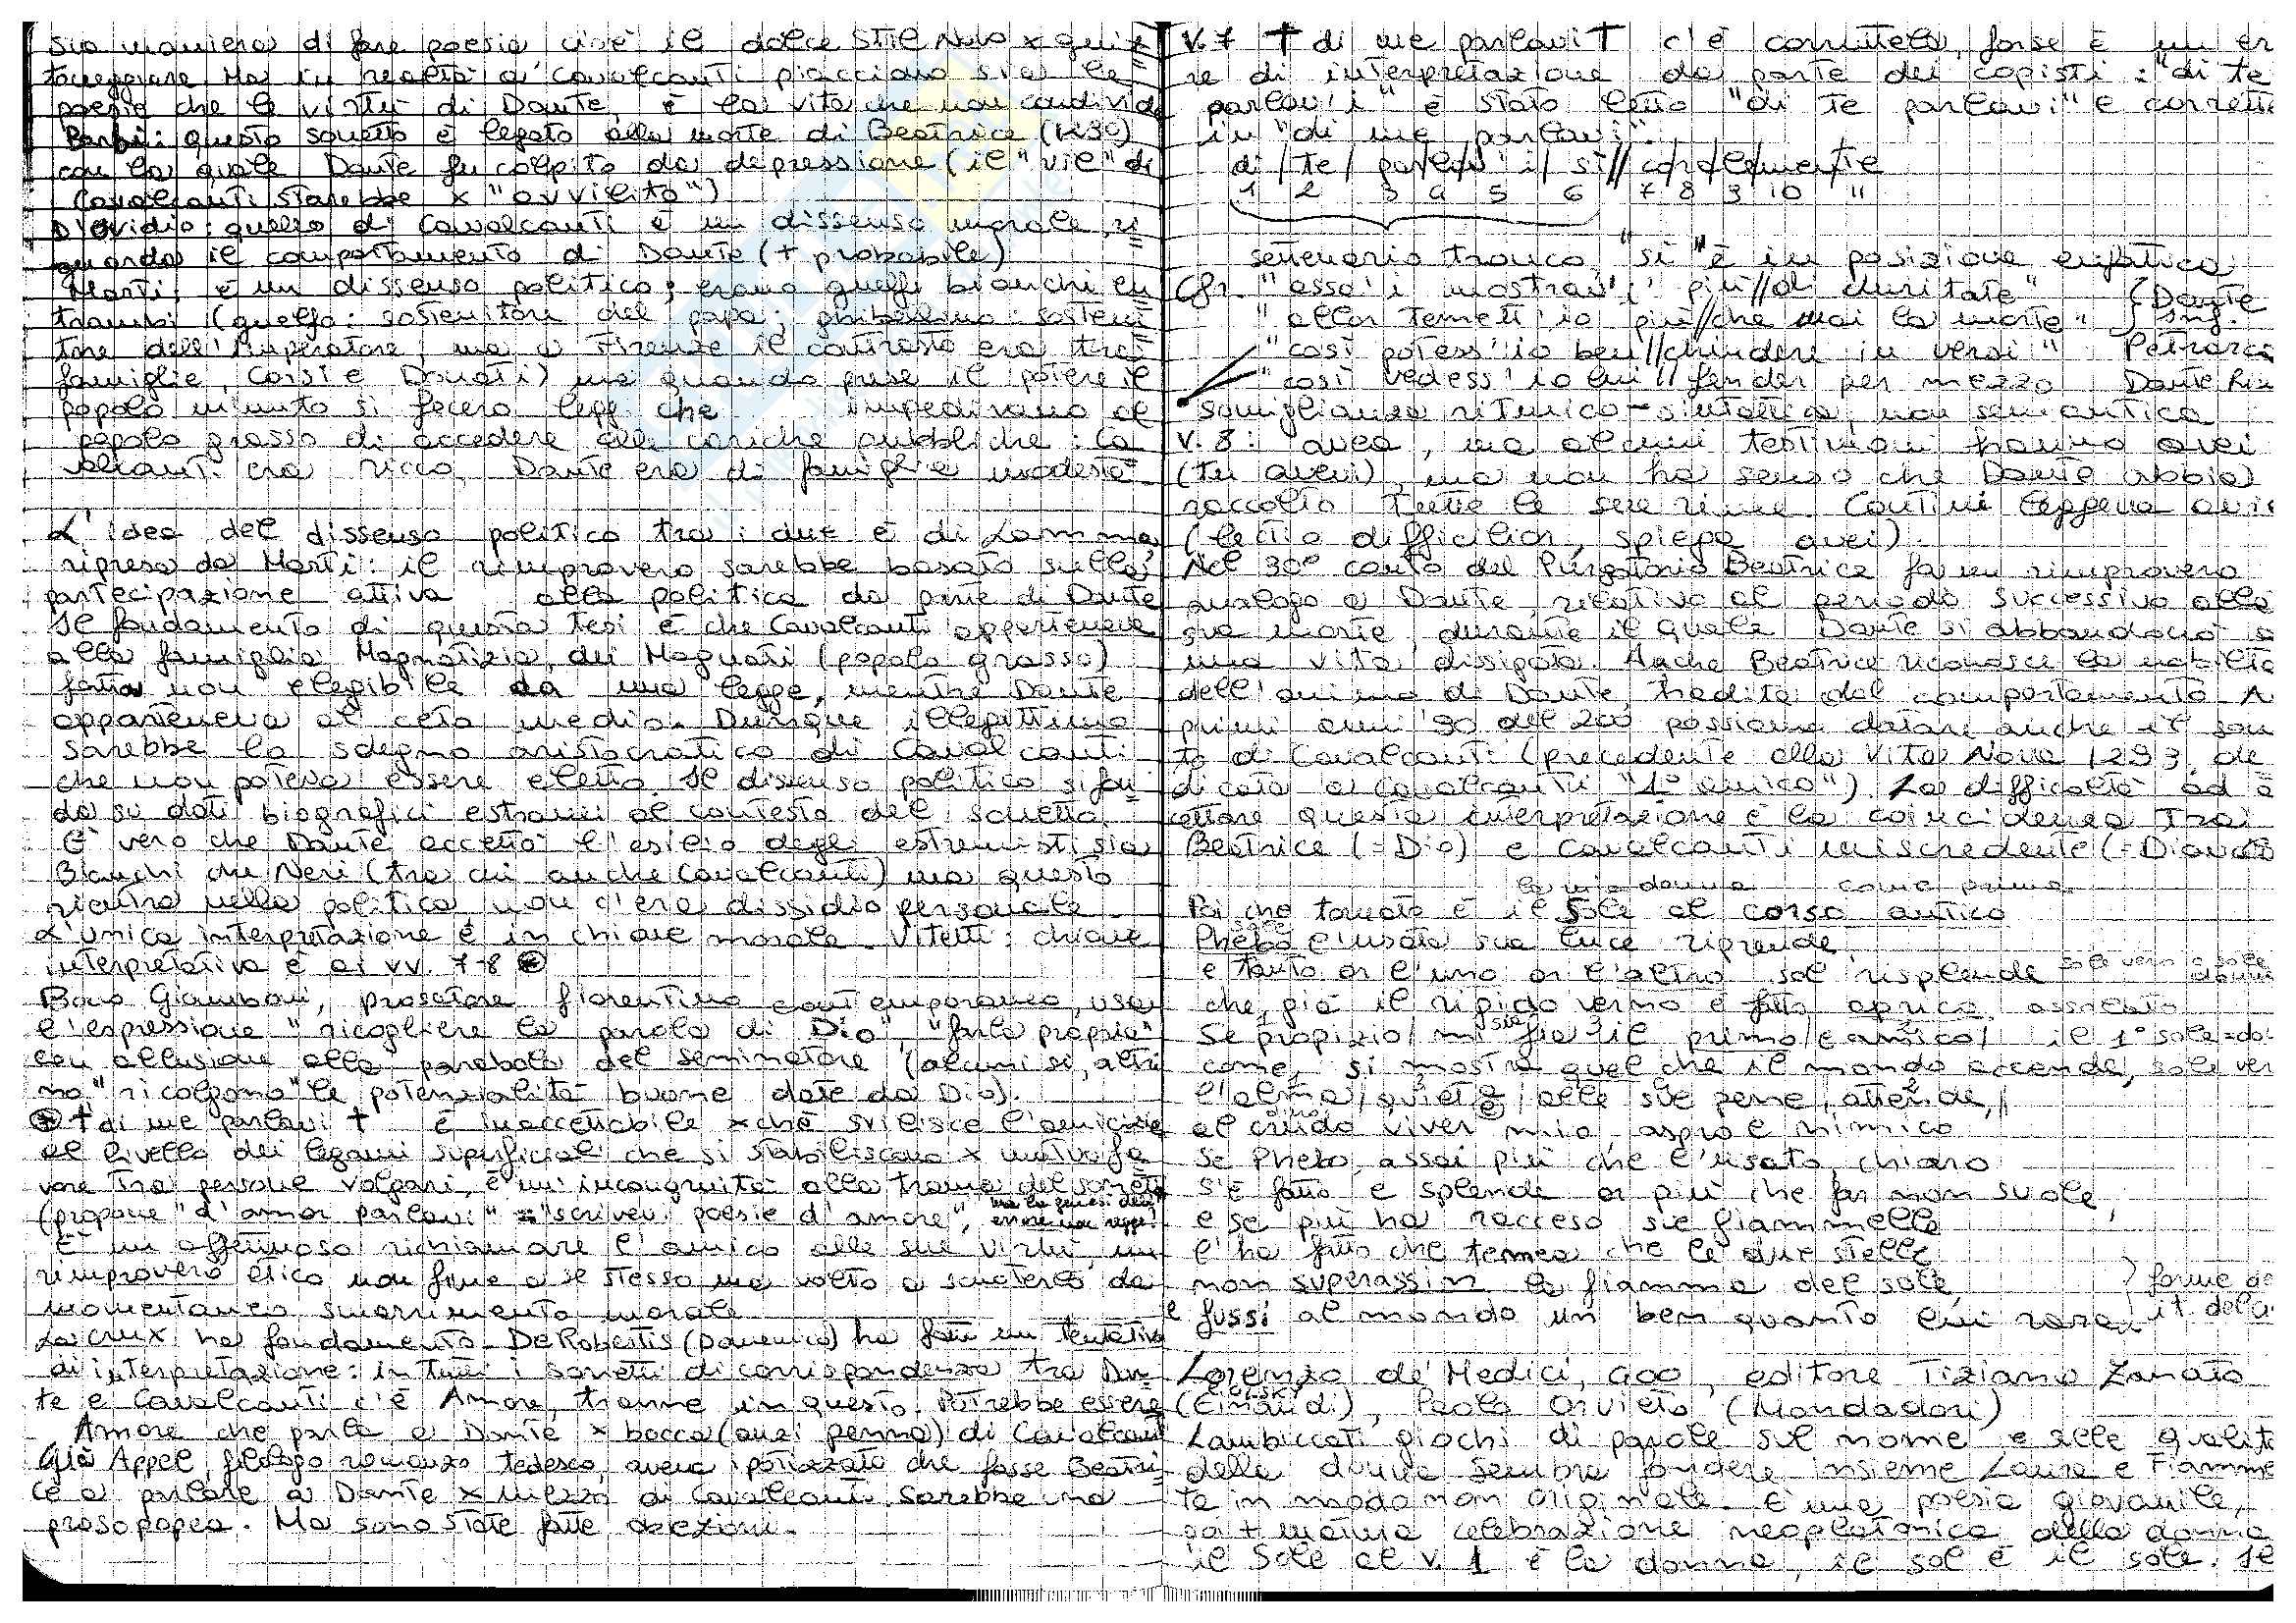 sua maniera di fare poesia cioè il dolce Stil Novo x quit=
toneggiare. Ma in realtà a Cavalcanti piacciono sia le
poesie che le virtù di Dante, è la vita che non condivide
Barbi: questo sonetto è legato alla morte di Beatrice (1290)
con la quale Dante fu colpito da depressione (il "vil" di
Cavalcanti starebbe x "avvilito")
D'Ovidio: quello di Cavalcanti è un dissenso morale, ri=
guarda il comportamento di Dante (+ probabile)
Marti: è un dissenso politico; erano guelfi bianchi en
trambi (guelfo: sostenitore del papa; ghibellino: sosteni
tore dell'Imperatore, ma a Firenze il contrasto era tra
famiglie, Corsi e Donati) ma quando prese il potere il
popolo minuto si fecero leggi che impedivano al
popolo grasso di accedere alle cariche pubbliche: Ca
valcanti era ricco, Dante era di famiglia modesta.
L'idea del dissenso politico tra i due è di Lamma
ripresa da Marti: il rimprovero sarebbe basato sulla
partecipazione attiva alla politica da parte di Dante
Il fondamento di questa tesi è che Cavalcanti apparteneva
alla famiglia Magnatizia, dei Magnati (popolo grasso)
fatta non elegibile da una legge, mentre Dante
apparteneva al ceto medio. Dunque illegittimo
sarebbe lo sdegno aristocratico di Cavalcanti
che non poteva essere eletto. Il dissenso politico si fon=
da su dati biografici estranei al contesto del sonetto.
È vero che Dante accettò l'esilio degli estremisti sia
Bianchi che Neri (tra cui anche Cavalcanti) ma questo
rientra nella politica, non c'era dissidio personale.
L'unica interpretazione è in chiave morale. Vitetti: chiave
interpretativa è ai vv. 7-8 *
Bono Giamboni, prosatore fiorentino contemporaneo, usa
l'espressione "ricogliere la parola di Dio", "farla propria"
con allusione alla parabola del seminatore (alcuni sì, altri
no "ricolgono" le potenzialità buone date da Dio).
* † di me parlavi † è inaccettabile xchè svilisce l'amicizia
al livello dei legami superficiali che si stabiliscono x mutuo fa
vore tra persone volgari, è un'incongruità alla trama del sonetto
(propone "d'amor parlavi" = "scrivevi poesie d'amore", ma la genesi dell'
errore non regge)
È un affettuoso richiamare l'amico alle sue virtù, un
rimprovero etico non fine a se stesso ma volto a scuoterlo da
momentaneo smarrimento morale.
La crux ha fondamento. De Robertis (Domenico) ha fatto un tentativo
di interpretazione: in tutti i sonetti di corrispondenza tra Dan=
te e Cavalcanti c'è Amore, tranne in questo. Potrebbe essere
Amore che parla a Dante x bocca (anzi penna) di Cavalcanti
Già Appel, filologo romanzo tedesco, aveva ipotizzato che fosse Beatri=
ce a parlare a Dante x mezzo di Cavalcanti. Sarebbe una
prosopopea. Ma sono state fatte obiezioni.
v. 7 † di me parlavi † c'è corruttela, forse è un er
re di interpretazione da parte dei copisti: "di te
parlav'i" è stato letto "di te parlavi" e corretto
in "di me parlavi".
di / te / parlav' i / sì // co/rd/al/mente
1 2 3 4 5 6 7 8 9 10 11
settenario tronco, "sì" è in posizione enfatica
Cfr. "assa' i mostrav' i' più // di duritate" } Dante
"allor temett' io più // che mai la morte" } Inf.
"così potess' io ben // chiudere in versi" Petrarca
"così vedess' io lui // fender per mezzo Dante Rim
somiglianza ritmico-sintattica, non semantica
v. 8: avea, ma alcuni testimoni hanno avei
(tu avevi), ma non ha senso che Dante abbia
raccolto tutte le sue rime. Contini leggeva avie
(lectio difficilior, spiega avei).
Nel 30° canto del Purgatorio Beatrice fa un rimprovero
analogo a Dante, relativo al periodo successivo alla
sua morte, durante il quale Dante si abbandonò a
una vita dissipata. Anche Beatrice riconosce la nobiltà
dell'animo di Dante, tradita dal comportamento. A
primi anni '90 del 200 possiamo datare anche il son
to di Cavalcanti (precedente alla Vita Nova 1293, de=
dicata a Cavalcanti "1° amico"). La difficoltà ad a
ccettare questa interpretazione è la coincidenza trai
Beatrice (=Dio) e Cavalcanti miscredente (=Diavolo
la mia donna come prima
Poi che tornato è il Sole al corso antico
Phebo l'usata sua luce riprende
e tanto or l'uno or l'altro sol risplende sole vero e sole
donna
che già il rigido verno è fatto aprico. assolato
Se propizio mi sie
fia il primo e amico il 1° sole = do
come si mostra quel che il mondo accende, sole ver
l'alma, quieta alle sue pene, attende,
al crudo viver mio aspro e nimico
Se Phebo, assai più che l'usato, chiaro
s'è fatto e splende or più che far non suole,
e se più ha racceso sue fiammelle
l'ha fatto che temea che le due stelle
non superassin la fiamma del sole,
e fussi al mondo un ben quanto lui raro. } forme de
it. del
Lorenzo de' Medici, 400, editore Tiziano Zanato
(Einaudi), Paolo Orvieto (Mondadori)
Lambiccati giochi di parole sul nome e alle qualità
della donna sembra fondere insieme Laura e Fiamme
ta in modo non originale. È una poesia giovanile,
poi + matura celebrazione neoplatonica della donna
il Sole al v. 1 è la donna, il sol è il sole. Il